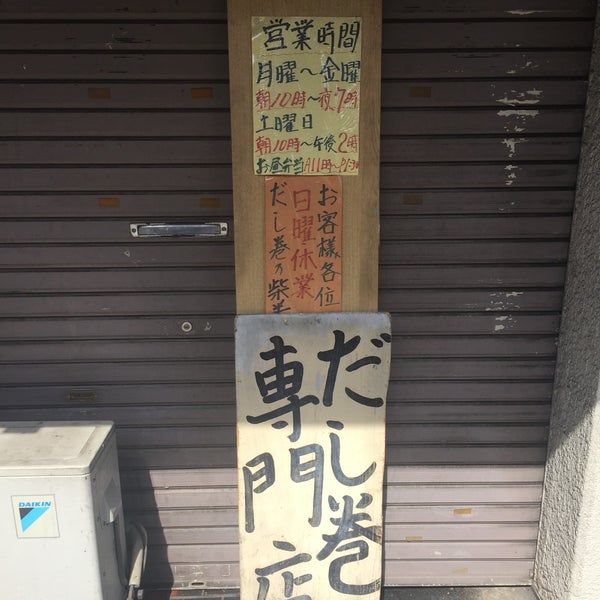 営業時間
月曜～金曜
朝10時～夜7時
土曜日
朝10時～午後2時
お昼弁当
お客様各位
日曜休業
だし巻乃柴
だし巻
専門店
DAIKIN